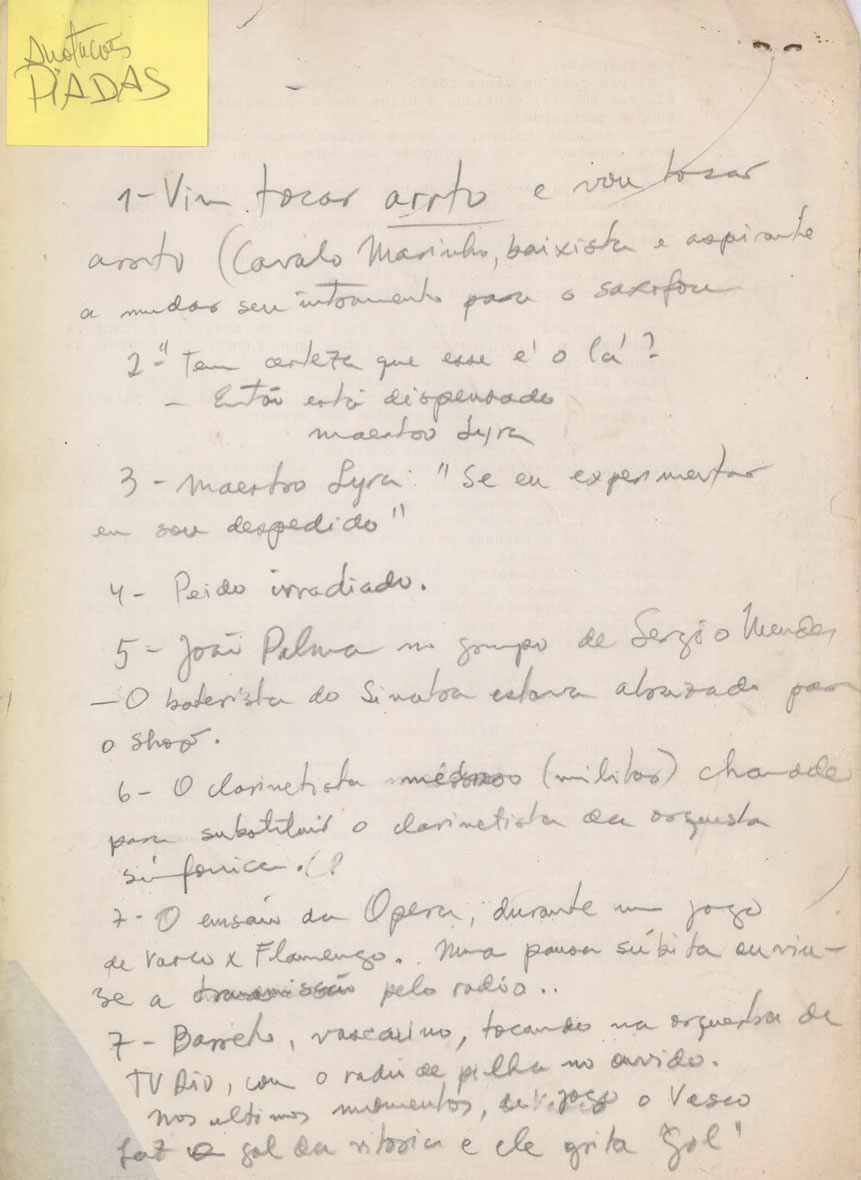 Anotações
PIADAS
1- Vim tocar arrto e vou tocar
arrto (Cavalo Marinho, baixista e aspirante
a mudar seu intrumento para o saxifou
2- "Tem certeza que esse é o lá?
- Então está dispensado
maestro Lyra
3 - Maestro Lyra: "Se eu experimentar
eu sou despedido"
4- Peido irradiado.
5 - João Palma no grupo de Sergio Mendes
- O baterista do Sinatra estava atrazado para
o show.
6- O clarinetista (militar) chamado
para substituir o clarinetista da orquesta
sinfonica.
7- O ensaio da Opera, durante um jogo
de Vasco x Flamengo. Numa pausa súbita ouviu-
se a transmissão pelo radio..
7- Barreto, vascaino, tocando na orquestra de
TV Rio, com o radio de pilha no ouvido.
Nos ultimos momentos, jogo o Vasco
faz o gol da vitoria e ele grita "Gol"